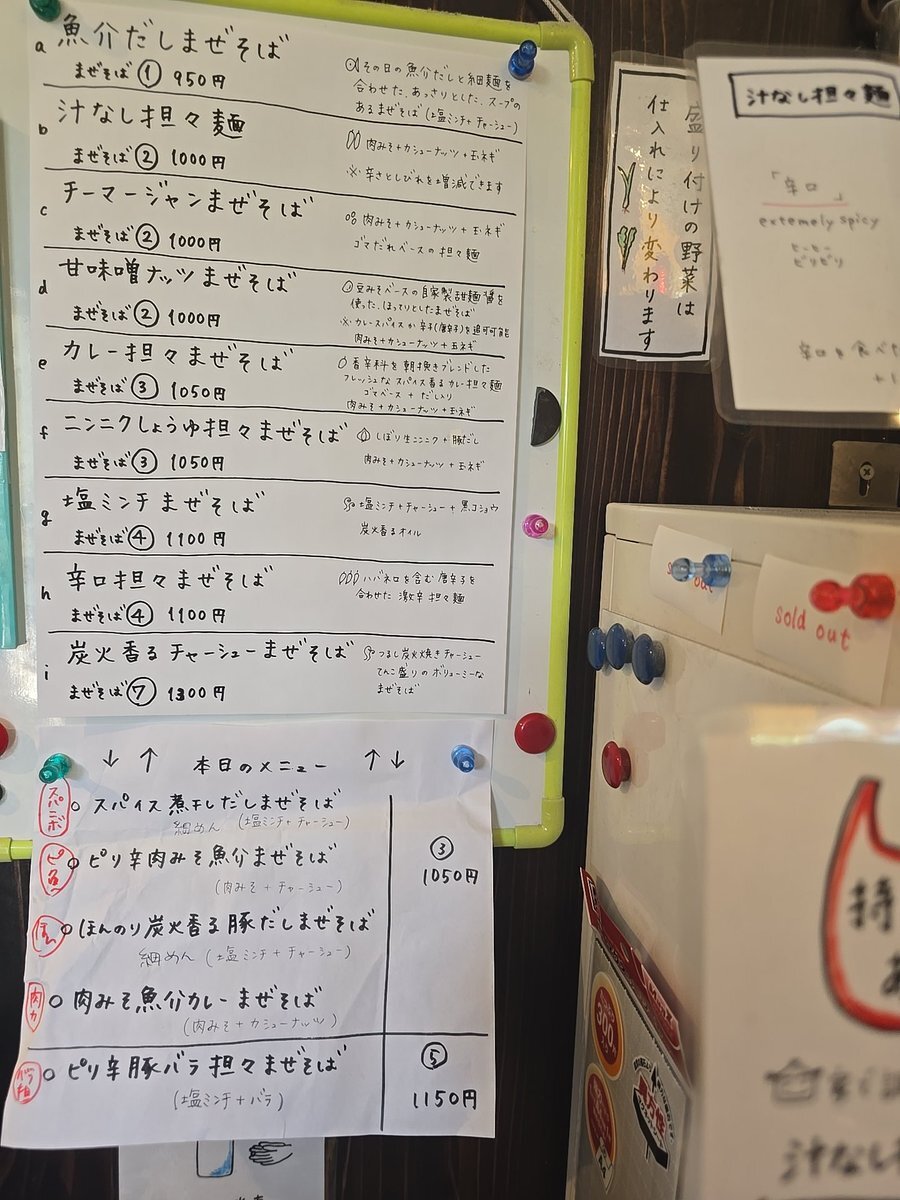 a 魚介だしまぜそば
まぜそば ① 950円
その日の魚介だしと細麺を
合わせた、あっさりとした、スープの
あるまぜそば (塩ミンチ+チャーシュー)
b 汁なし担々麺
まぜそば ② 1000円
肉みそ+カシューナッツ+玉ネギ
※ 辛さとしびれを増減できます
c チーマージャンまぜそば
まぜそば ② 1000円
肉みそ+カシューナッツ+玉ネギ
ゴマだれベースの担々麺
d 甘味噌ナッツまぜそば
まぜそば ② 1000円
豆みそベースの自家製甜麺醤を
使った、ほってりとしたまぜそば
※ カレースパイスか辛子(唐辛子)を追可可能
肉みそ+カシューナッツ+玉ネギ
e カレー担々まぜそば
まぜそば ③ 1050円
香辛料を朝挽きブレンドした
フレッシュなスパイス香るカレー担々麺
ゴマベース+だし入り
肉みそ+カシューナッツ+玉ネギ
f ニンニクしょうゆ担々まぜそば
まぜそば ③ 1050円
しぼり生ニンニク+豚だし
肉みそ+カシューナッツ+玉ネギ
g 塩ミンチまぜそば
まぜそば ④ 1100円
塩ミンチ+チャーシュー+黒コショウ
炭火香るオイル
h 辛口担々まぜそば
まぜそば ④ 1100円
ハバネロを含む唐辛子を
合わせた 激辛担々麺
i 炭火香るチャーシューまぜそば
まぜそば ⑦ 1300円
つるし炭火焼きチャーシュー
てんこ盛りのボリューミーな
まぜそば
↓ ↑ 本日のメニュー ↑ ↓
スパニボ ○ スパイス煮干しだしまぜそば
細めん (塩ミンチ+チャーシュー)
○ ピリ辛肉みそ魚介まぜそば
(肉みそ+チャーシュー)
③
1050円
○ ほんのり炭火香る豚だしまぜそば
細めん (塩ミンチ+チャーシュー)
肉カ ○ 肉みそ魚介カレーまぜそば
(肉みそ+カシューナッツ)
バラ担 ○ ピリ辛豚バラ担々まぜそば
(塩ミンチ+バラ)
⑤
1150円
盛り付けの野菜は
仕入れにより変わります
汁なし担々麺
「辛口」
extemely spicy
ヒーヒー
ビリビリ
辛口を食べた
sold out
sold out
持
汁なし